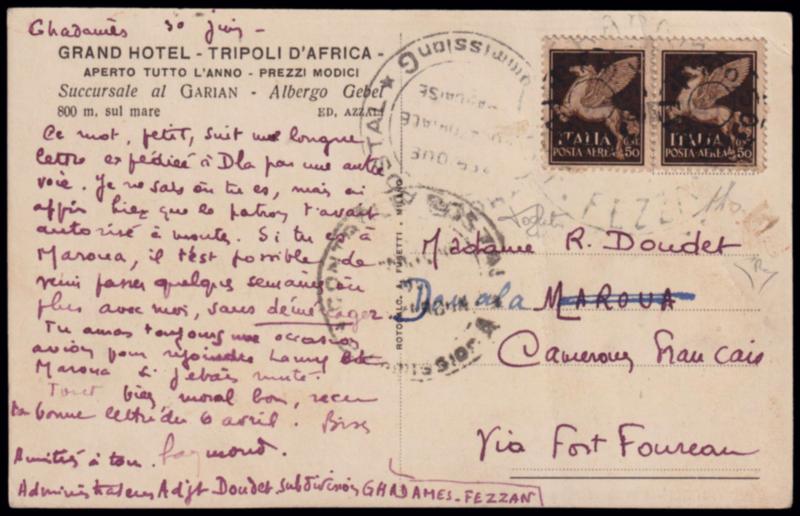 Ghadamès 30 juin -
GRAND HOTEL - TRIPOLI D'AFRICA -
APERTO TUTTO L'ANNO - PREZZI MODICI
Succursale al GARIAN - Albergo Gebel
800 m. sul mare
ED, AZZALI
Ce mot, petit, suit une longue
lettre expédiée à Dla par une autre
voie. Je ne sais où tu es, mais ai
appris hier que le patron t'avait
autorisé à monter. Si tu es à
Maroua, il t'est possible de
venir passer quelques semaines ou
plus avec moi, sans déménager.
Tu auras toujours une occasion
avion pour rejoindre Lamy
Maroua si j'étais muté.
bien, moral bon, reçu
ta bonne lettre du 6 avril. Bises
Amitiés à tous. Raymond.
Administrateur Adjt Doudet subdivision GHADAMES-FEZZAN
ROTOCALC. A. FUSETTI - MILANO
ITALIA
POSTA AEREA C. 50
ITALIA
POSTA AEREA C. 50
CONTROLE POSTAL
Commission G
CONTROLE POSTAL
Commission A
FEZZAN
Madame R. Doudet
Douala MAROUA
Cameroun Français
Via Fort Foureau